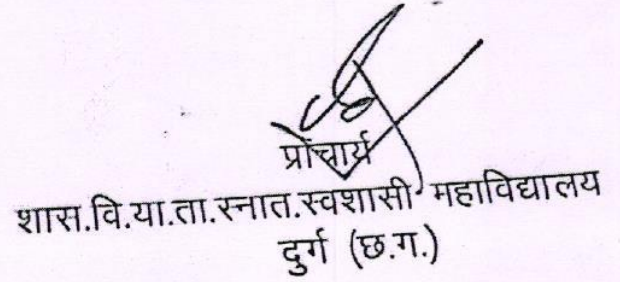 प्राचार्य
शास.वि.या.ता.स्नात.स्वशासी महाविद्यालय
दुर्ग (छ.ग.)